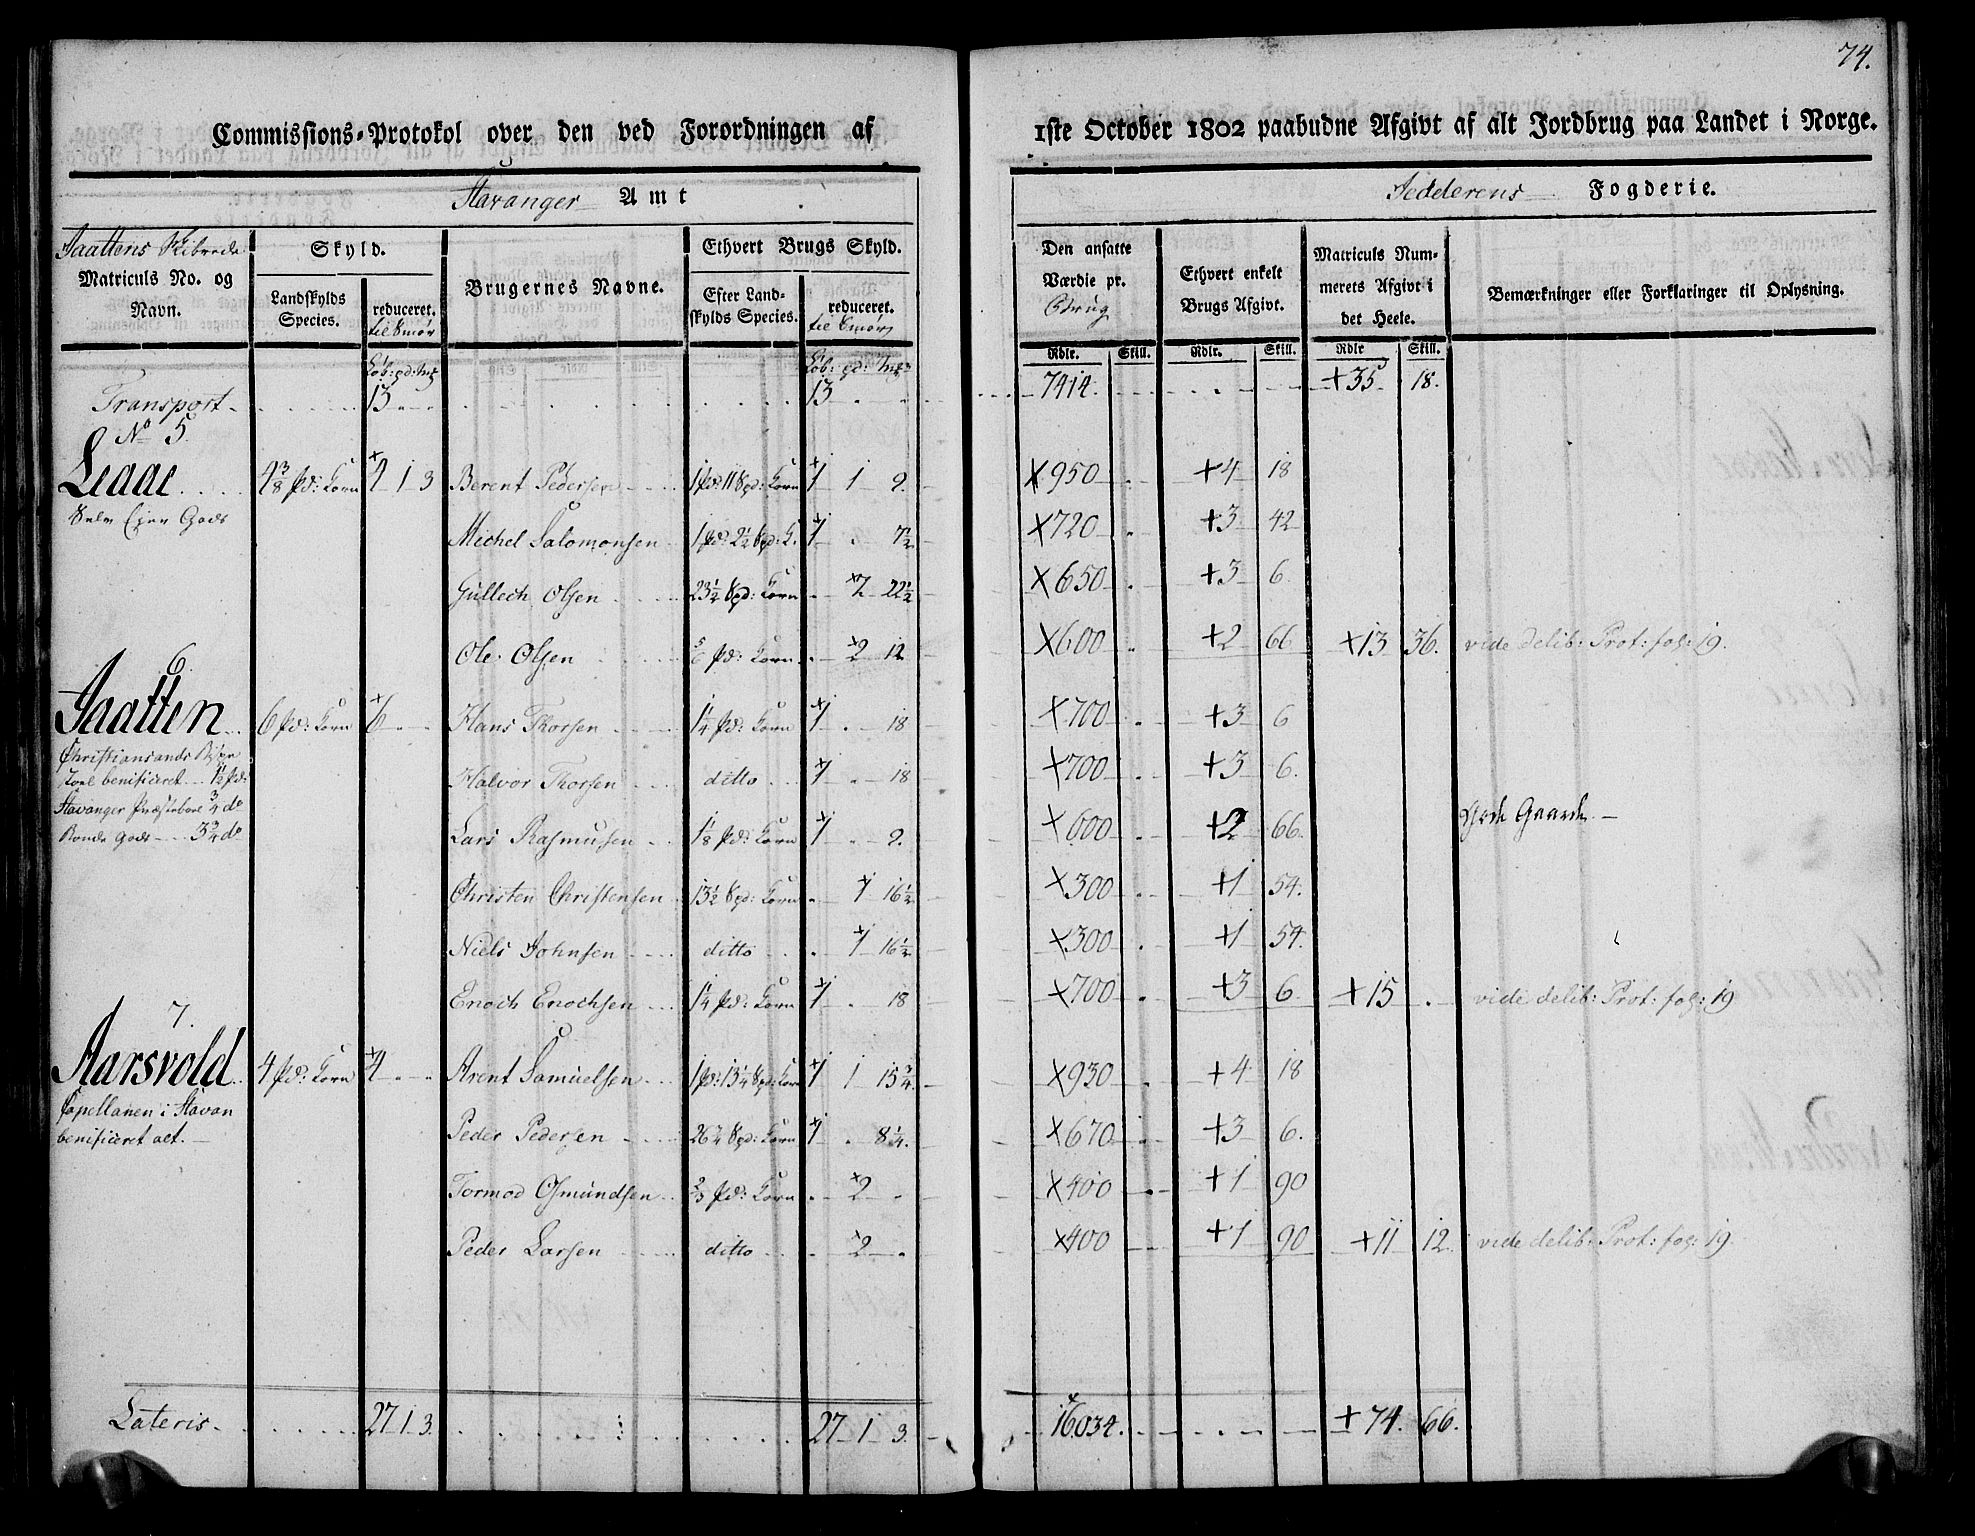 74.
Commissions-Protokol over den ved Forordningen af 1ste October 1802 paabudne Afgivt af alt Jordbrug paa Landet i Norge.
Stavanger Amt
Jedderens Fogderie.
Jaattens Skibrede
Matriculs No. og Navn.
Skyld.
Landskylds Species.
reduceret.
til Smør
Brugernes Navne.
Ethvert Brugs Skyld.
Efter Landskylds Species.
reduceret.
til Smør
Den ansatte Værdie pr. Brug
Ethvert enkelt Brugs Afgivt.
Matriculs Nummerets Afgivt i det Heele.
Bemærkninger eller Forklaringer til Oplysning.
Løb: pd: mk Løb: pd: mk Rdlr. Skill. Rdlr. Skill. Rdlr Skill.
Transport 13 13 7414 +35 18.
No 5.
4 3/8 Pd: Korn 4 1 3 Berent Pedersen 1 Pd: 11 Spd: Korn 1 1 9. ×950 +4 18
Selv Ejer Gods
Michel Salomonsen 1 Pd: 2 1/2 Spd: K. 1 . 7 1/2 ×720 +3 42
Gullech Olsen 23 1/4 Spd: Korn . 2 22 1/2 ×650 +3 6
Ole Olsen 5/6 Pd: Korn . 2 12 ×600 +2 66 +13 36. vide delib: Prot: fol: 19.
6
Jaatten 6 Pd: Korn 6 Hans Thorsen 1 1/4 Pd: Korn 1 . 18 ×700 +3 6
Christiansands Bispe
Stoel benificeret 1 1/2 Pd: Halvor Thorsen ditto 1 . 18 ×700 +3 6.
Stavanger Præstebord 3/4 do
Bonde Gods 3 3/4 do Lars Rasmusen 1 1/8 Pd: Korn 1 . 9. ×600 +2 66. Øde Gaarde
Christen Christensen 13 1/2 Spd: Korn . 1 16 1/2 ×300 +1 54.
Niels Johnsen ditto . 1 16 1/2 ×300 +1 54.
Enoch Enochsen 1 1/4 Pd: Korn 1 . 18 ×700 +3 6 +15 . vide delib: Prot: fol: 19
7.
Aarsvold 4 Pd: Korn 4 Arent Samuelsen 1 Pd: 13 1/4 Spd: Korn 1 1 15 3/4 ×930 +4 18
Capellanen i Stavan
benificeret alt. Peder Pedersen 26 1/4 Spd: Korn 1 . 8 1/4. ×670 +3 6.
Tormod Osmundsen 2/3 Pd: Korn . 2 . ×400 +1 90
Peder Larsen ditto . 2 . ×400 +1 90 +11 12. vide delib: Prot: fol: 19.
Lateris 27 1 3 27 1 3. 16034. +74. 66.